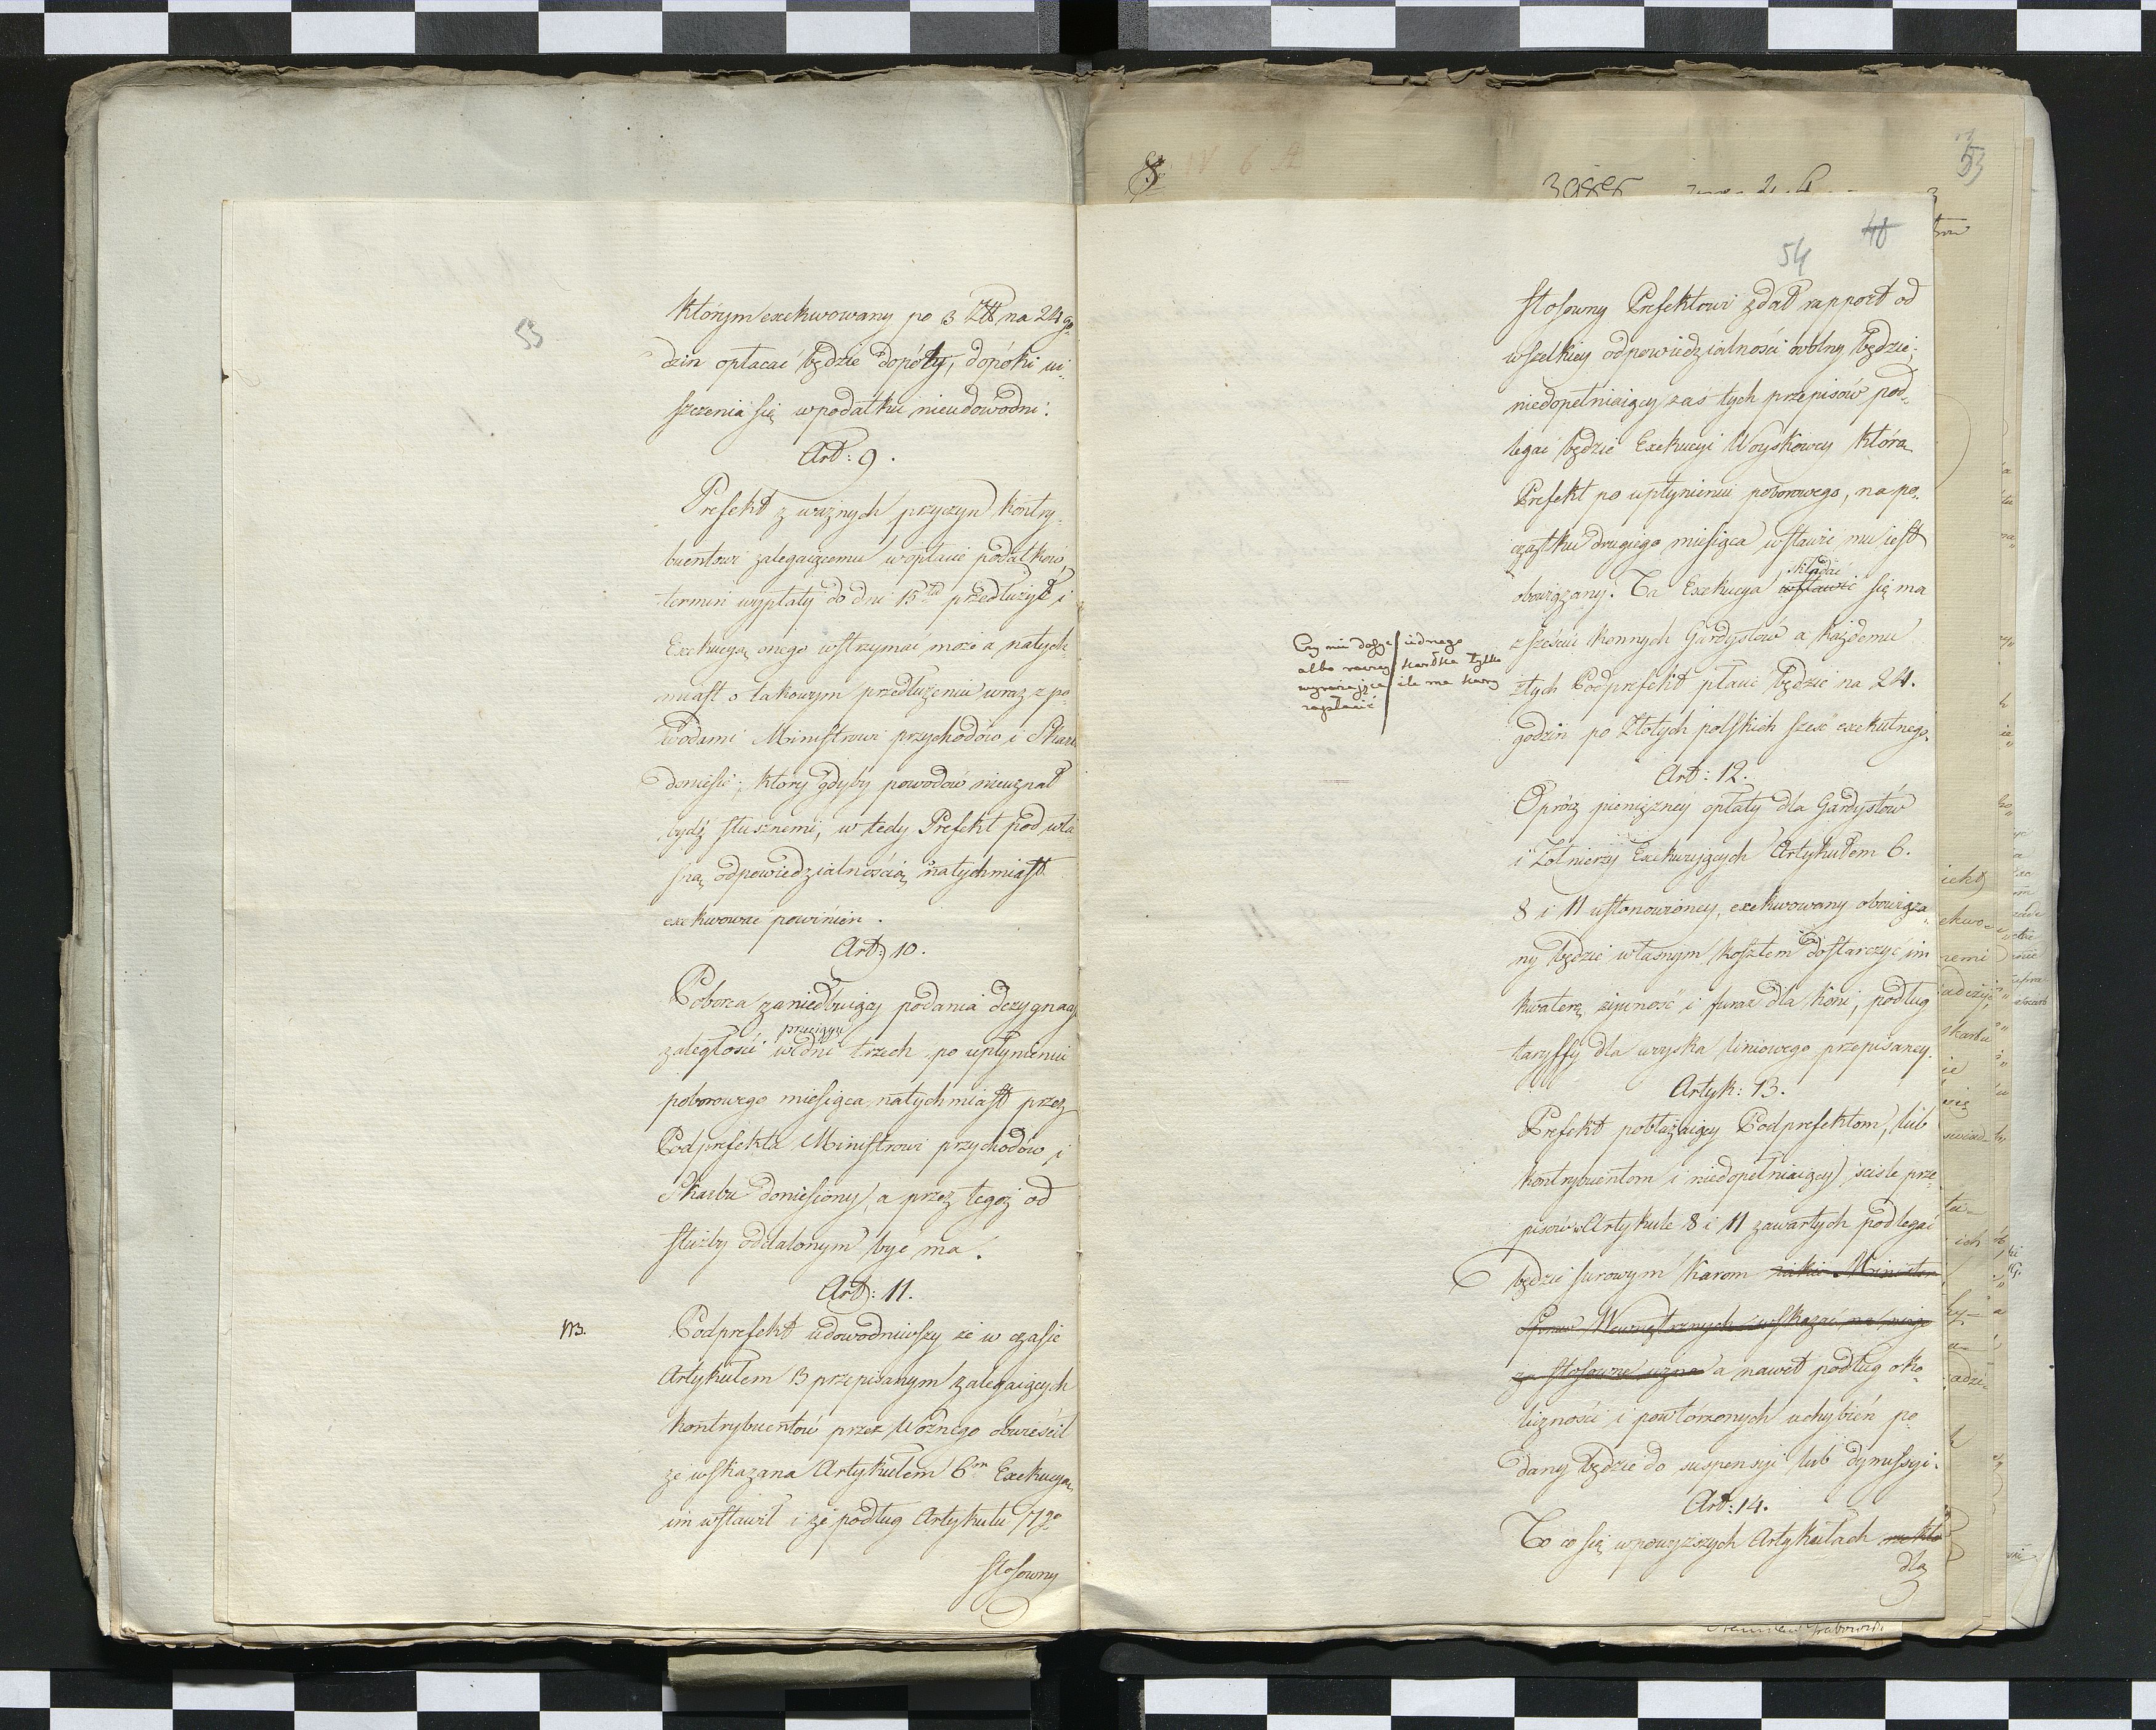 53
którym exekwowany po 3 Złł na 24 go„
dzin opłacać będzie dopóty, dopóki ui„
szczenia się w podatku nieudowodni.
Art: 9.
Prefekt z ważnych przyczyn kontry„
buentowi zalegaiącemu w opłacie podatków,
termin wypłaty do dni 15tu przedłużyć i
Exekucyą onego wstrzymać może a natych„
miast o takowym przedłużeniu wraz z po„
wodami Ministrowi przychodów i Skarbu
donieść; który gdyby powodów nieuznał
bydź słusznemi, w tedy Prefekt pod wła„
sną odpowiedzialnością natychmiast
exekwować powinien.
Art: 10.
Poborca zaniedbuiący podania dezygnacyi
zaległości w przeciągu dni trzech po upłynieniu
poborowego miesiąca natychmiast przez
Podprefekta Ministrowi przychodów i
Skarbu doniesiony, a przez tegoż od
służby oddalonym być ma.
Art: 11.
NB. Podprefekt udowodniwszy że w czasie
Artykułem 3 przepisanym zalegaiących
kontrybuentów przez Woźnego obwieścił
że wskazana Artykułem 6m Exekucyą
im wstawił i że podług Artykułu 7go
stosowny
53
48
54
stosowny Prefektowi zdał rapport od
wszelkiey odpowiedzialności wolny będzie;
niedopełniaiący zaś tych przepisów pod„
legać będzie Exekucyi Woyskowey którą
Prefekt po upłynieniu poborowego, na po„
czątku drugiego miesiąca wstawić mu iest
obowiązany. Ta Exekucya wstawić składać się ma
z sześciu konnych Gardystów a każdemu
z tych Podprefekt płacić będzie na 24.
godzin po Złotych polskich sześć exekutnego.
Czy nie dosyć iednego
albo raczey kartka tylko
wyrażaiąca ile ma kary
zapłacić
Art: 12.
Oprócz pieniężney opłaty dla Gardystów
i Żołnierzy Exekwuiących Artykułem 6.
8 i 11 ustanowioney, exekwowany obowiąza„
ny będzie własnym kosztem dostarczyć im
kwaterę, żywność i furaż dla koni, podług
taryffy dla woyska liniowego przepisaney.
Artyk: 13.
Prefekt pobłażaiący Podprefektom, lub
kontrybuentom i niedopełniaiący ściśle prze„
pisów w Artykule 8 i 11 zawartych podlegać
będzie surowym karom iakie Minister
Spraw Wewnętrznych wskazać na niego
za stosowne uzna a nawet podług oko„
liczności i powtórzonych uchybień po„
dany będzie do suspensyi lub dymissyi.
Art: 14.
To co się w powyższych Artykułach rzekło
dla